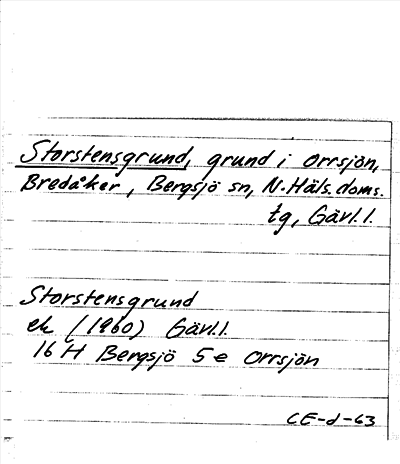 Storstensgrund, grund i Orrsjön,
Bredåker, Bergsjö sn, N. Häls. doms.
tg, Gävl. l.
Storstensgrund
ek (1960) Gävl. l.
16 H Bergsjö 5 e Orrsjön
CE-d-63